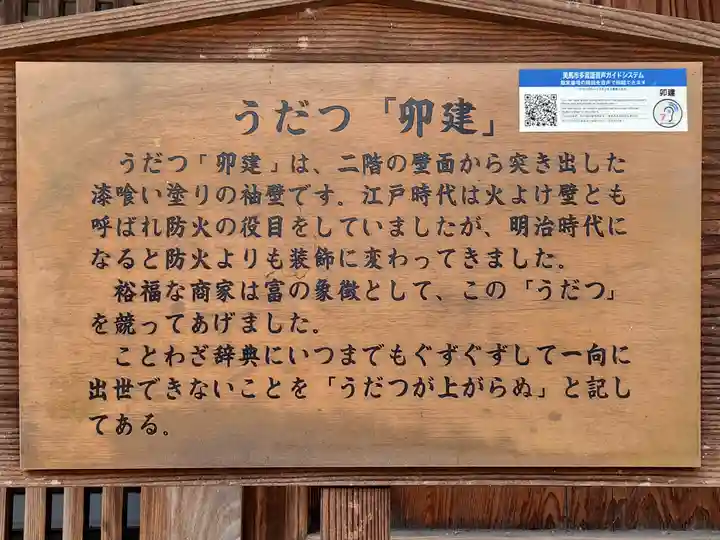 美馬市多言語音声ガイドシステム
卯建
7
うだつ「卯建」
うだつ「卯建」は、二階の壁面から突き出した
漆喰い塗りの袖壁です。江戸時代は火よけ壁とも
呼ばれ防火の役目をしていましたが、明治時代に
なると防火よりも装飾に変わってきました。
裕福な商家は富の象徴として、この「うだつ」
を競ってあげました。
ことわざ辞典にいつまでもぐずぐずして一向に
出世できないことを「うだつが上がらぬ」と記し
てある。